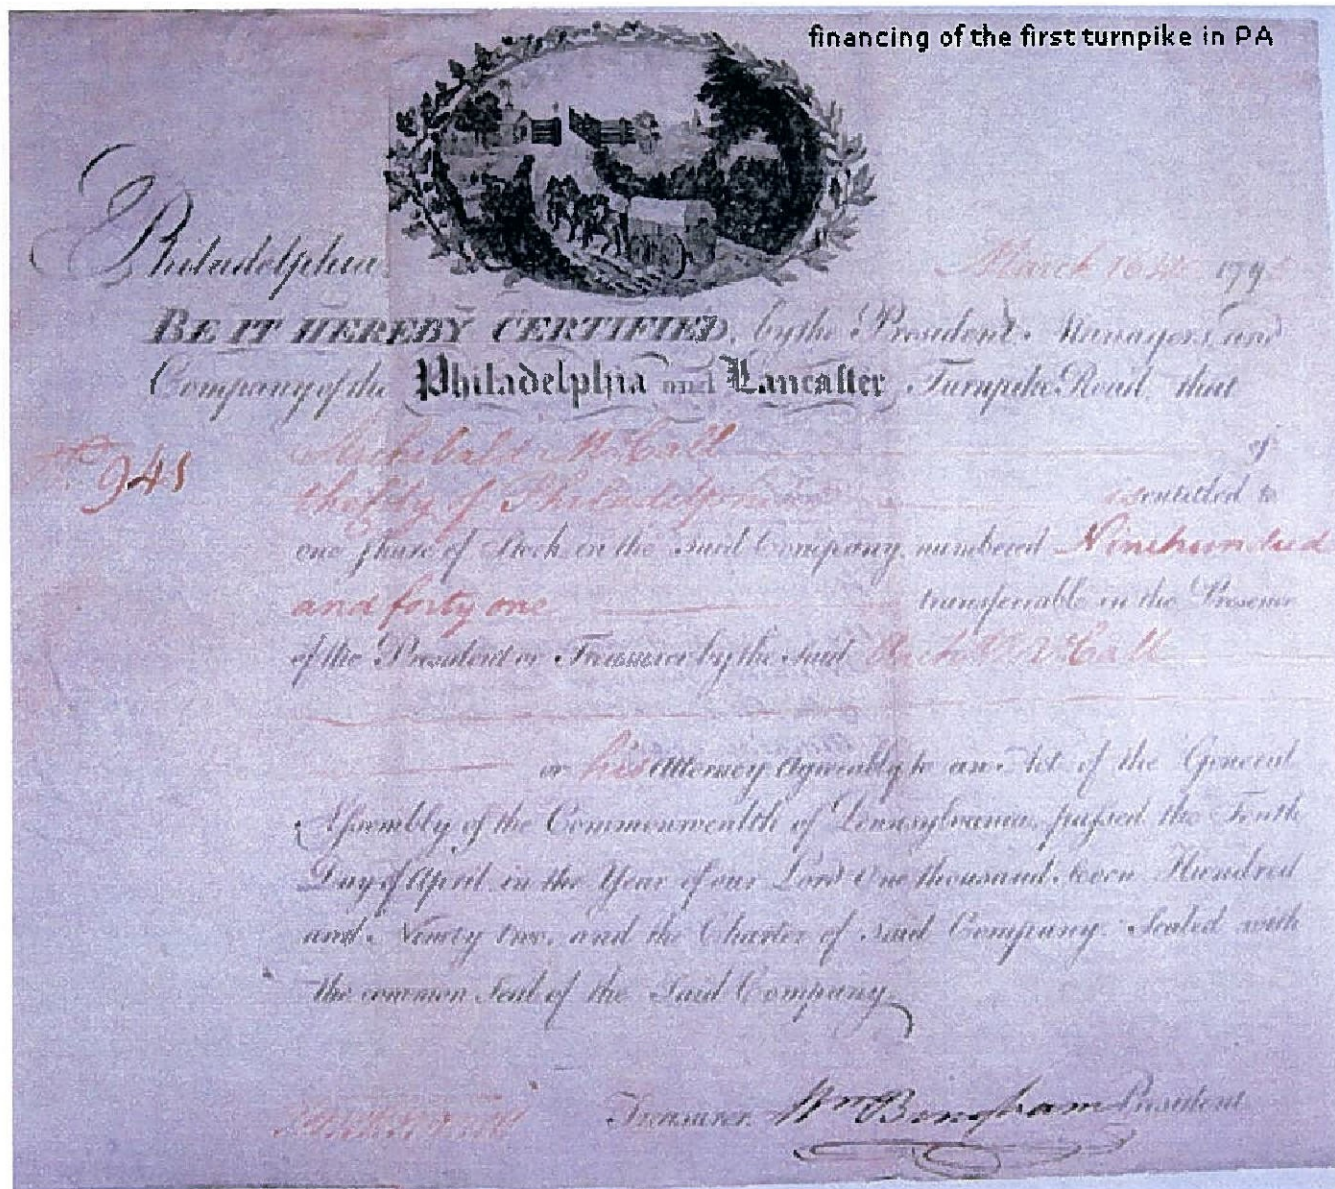 financing of the first turnpike in PA
Philadelphia March 16th 179
BE IT HEREBY CERTIFIED, by the President, Managers, and
Company of the Philadelphia and Lancaster Turnpike Road, that
Archibald McCall of
941
the City of Philadelphia is entitled to
one Share of Stock in the said Company, numbered Ninehundred
and forty one transferrable in the Presence
of the President or Treasurer by the said Arch McCall
or his Attorney Agreeably to an Act of the General
Assembly of the Commonwealth of Pennsylvania, passed the Tenth
Day of April in the Year of our Lord One thousand Seven Hundred
and Ninety two, and the Charter of said Company. Sealed with
the common Seal of the Said Company.
Treasurer. Wm Bingham President